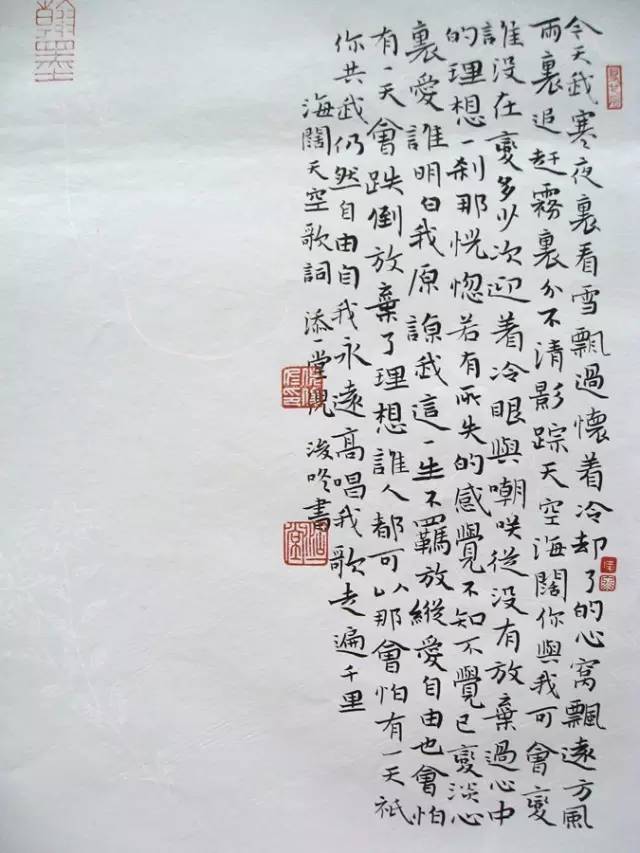 今天我寒夜裏看雪飄過懷着冷却了的心窩飄遠方風
雨裏追赶霧裏分不清影踪天空海闊你與我可會變
誰没在變多少次迎着冷眼與嘲咲從没有放棄過心中
的理想一刹那恍惚若有所失的感覺不知不覺已變淡心
裏愛誰明白我原諒我這一生不羈放縱愛自由也會怕
有一天會跌倒放棄了理想誰人都可以那會怕有一天祇
你共我仍然自由自我永遠高唱我歌走遍千里
海闊天空歌詞 添一堂 浚 書
翰墨